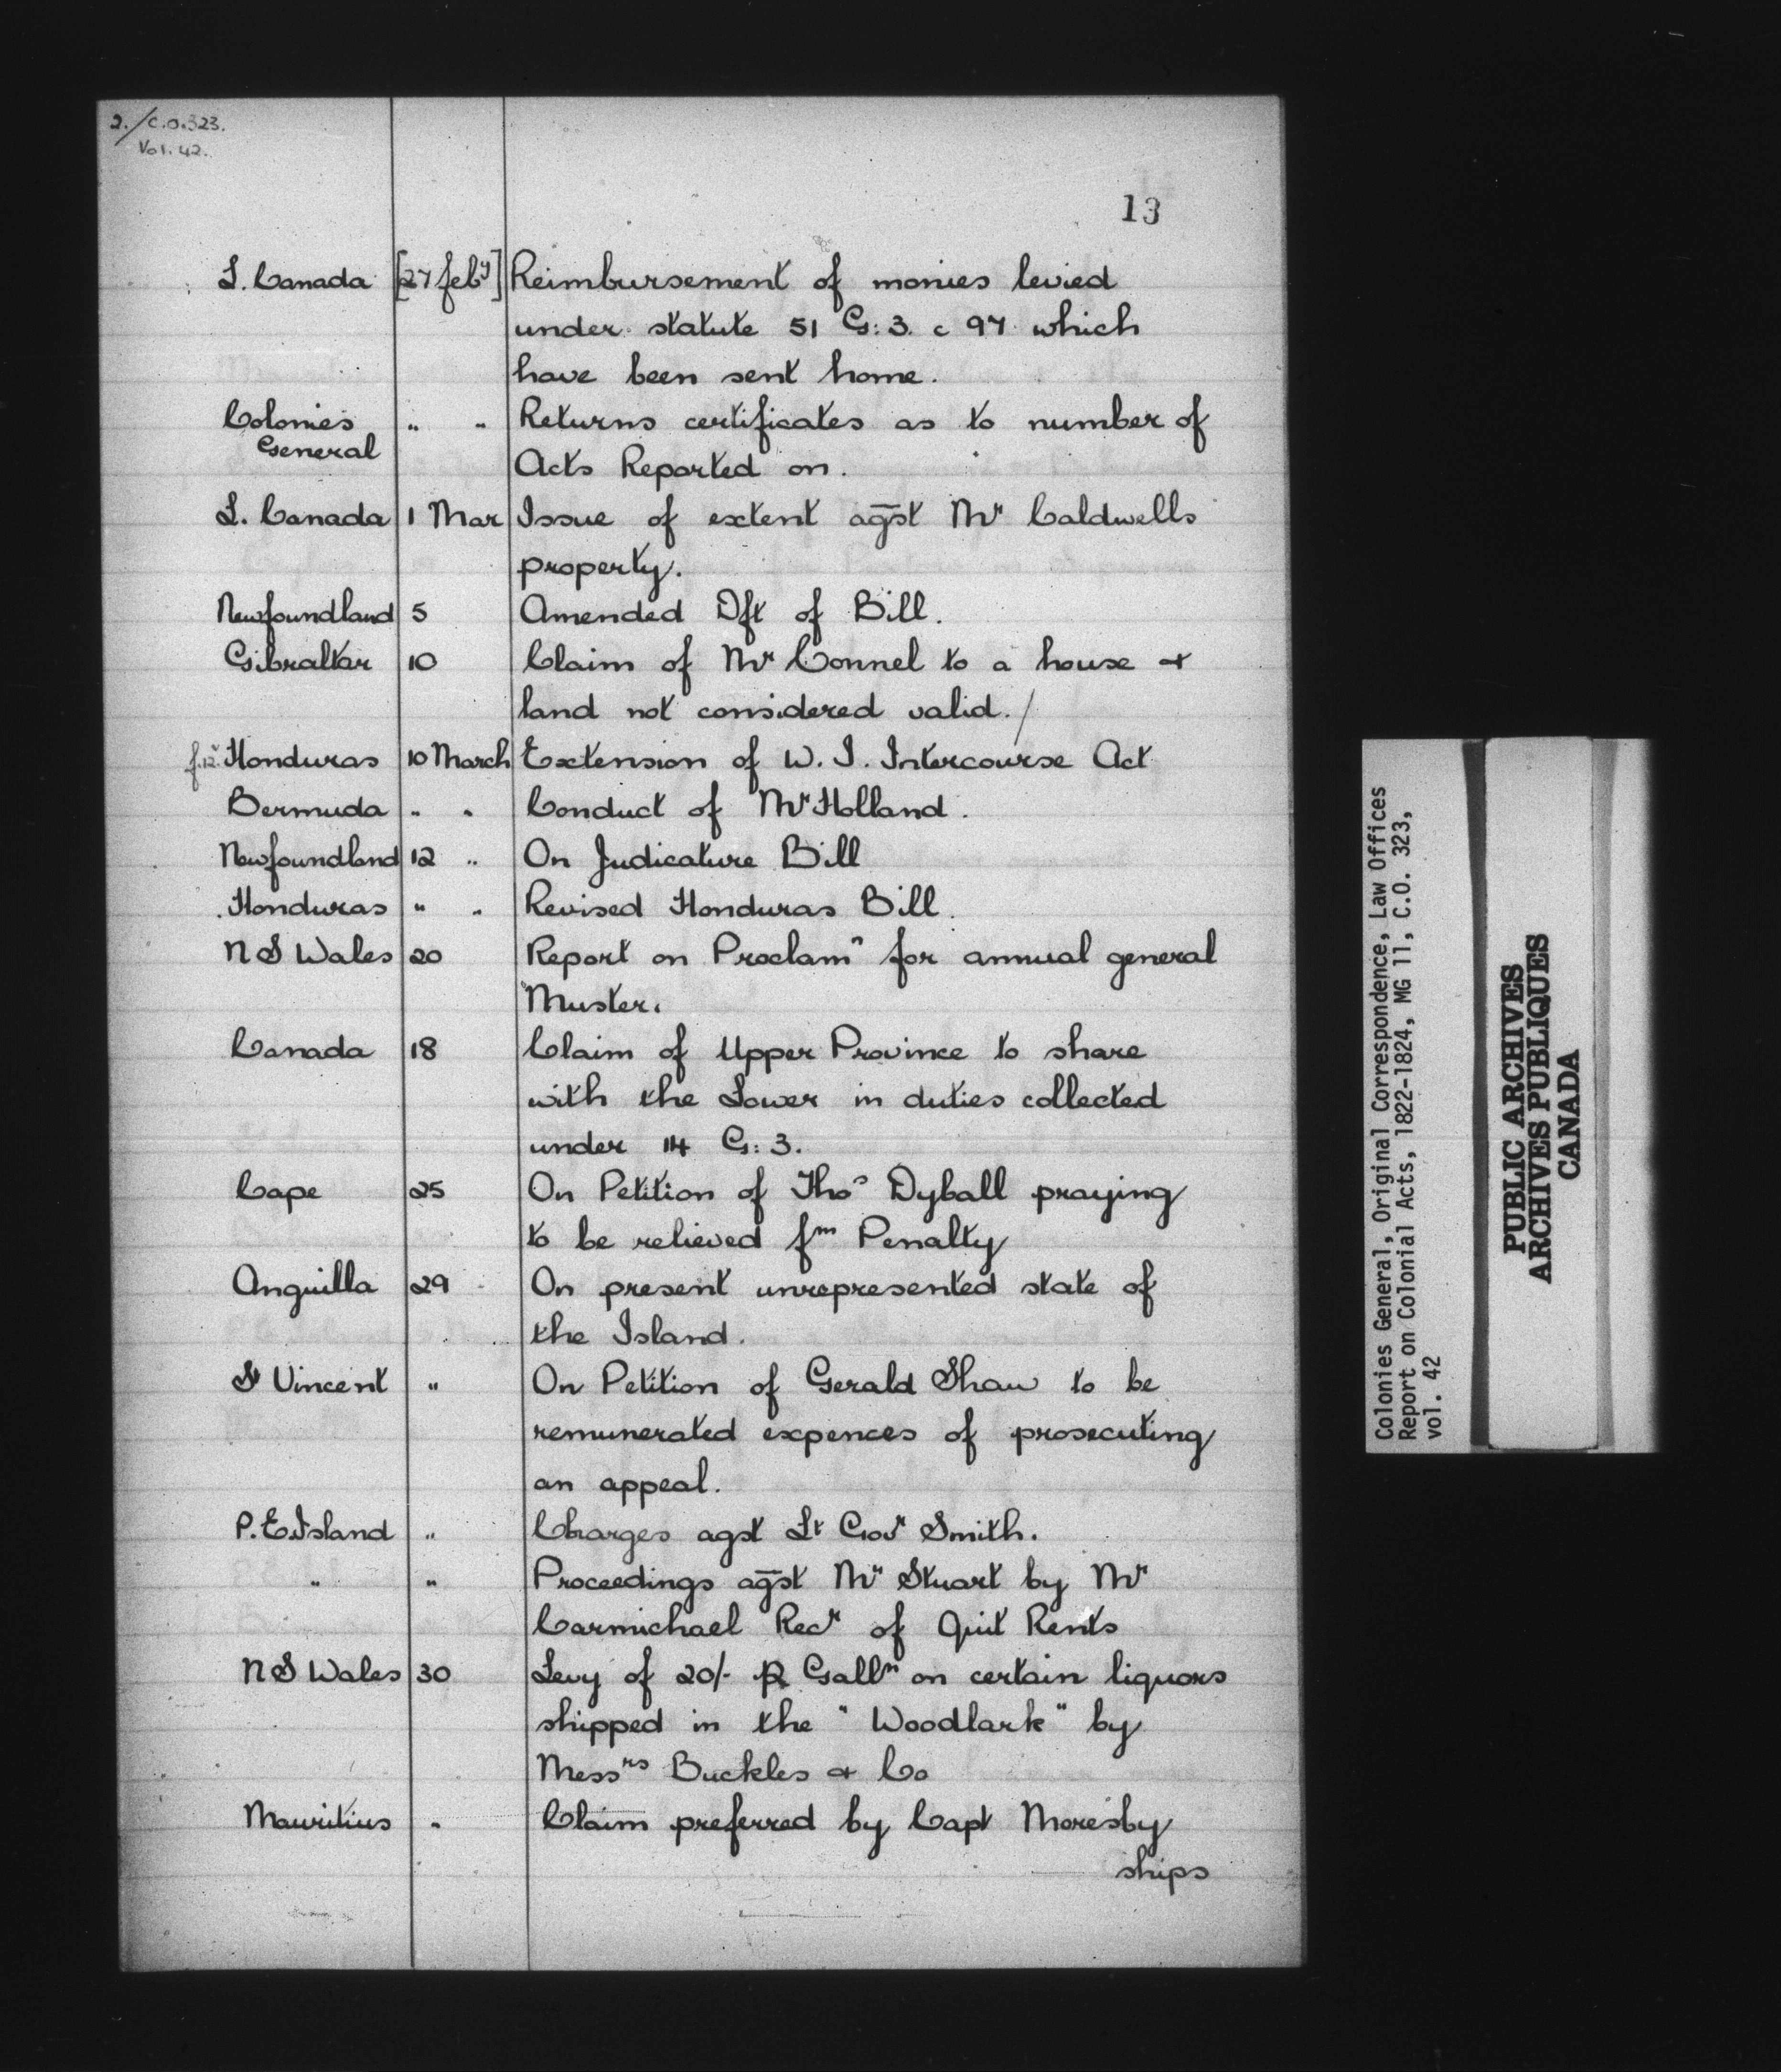 2./C.O.323.
Vol. 42.
13
L. Canada [27 Feby] Reimbursement of monies levied
under statute 51 G: 3. c 97 which
have been sent home.
Colonies " " Returns certificates as to number of
General
Acts Reported on.
L. Canada 1 Mar Issue of extent agst Mr Caldwells
property.
Newfoundland 5 Amended Dft of Bill.
Gibraltar 10 Claim of Mr Connel to a house &
land not considered valid. /
f.12. Honduras 10 March Extension of W. I. Intercourse Act
Bermuda " " Conduct of Mr Holland.
Newfoundland 12 " On Judicature Bill
Honduras " " Revised Honduras Bill.
N S Wales 20 Report on Proclamn for annual general
Muster.
Canada 18 Claim of Upper Province to share
with the Lower in duties collected
under 14 G: 3.
Cape 25 On Petition of Thos Dyball praying
to be relieved fm Penalty
Anguilla 29 On present unrepresented state of
the Island.
St Vincent " On Petition of Gerald Shaw to be
remunerated expences of prosecuting
an appeal.
P. E. Island " Charges agst Lt Govr Smith.
" " Proceedings agst Mr Stuart by Mr
Carmichael Recr of Quit Rents
N S Wales 30 Levy of 20/- ⅌ Galln on certain liquors
shipped in the "Woodlark" by
Messrs Buckles & Co
Mauritius " Claim preferred by Capt Moresby
ships
Colonies General, Original Correspondence, Law Offices
Report on Colonial Acts, 1822-1824, MG 11, C.O. 323,
vol. 42
PUBLIC ARCHIVES
ARCHIVES PUBLIQUES
CANADA